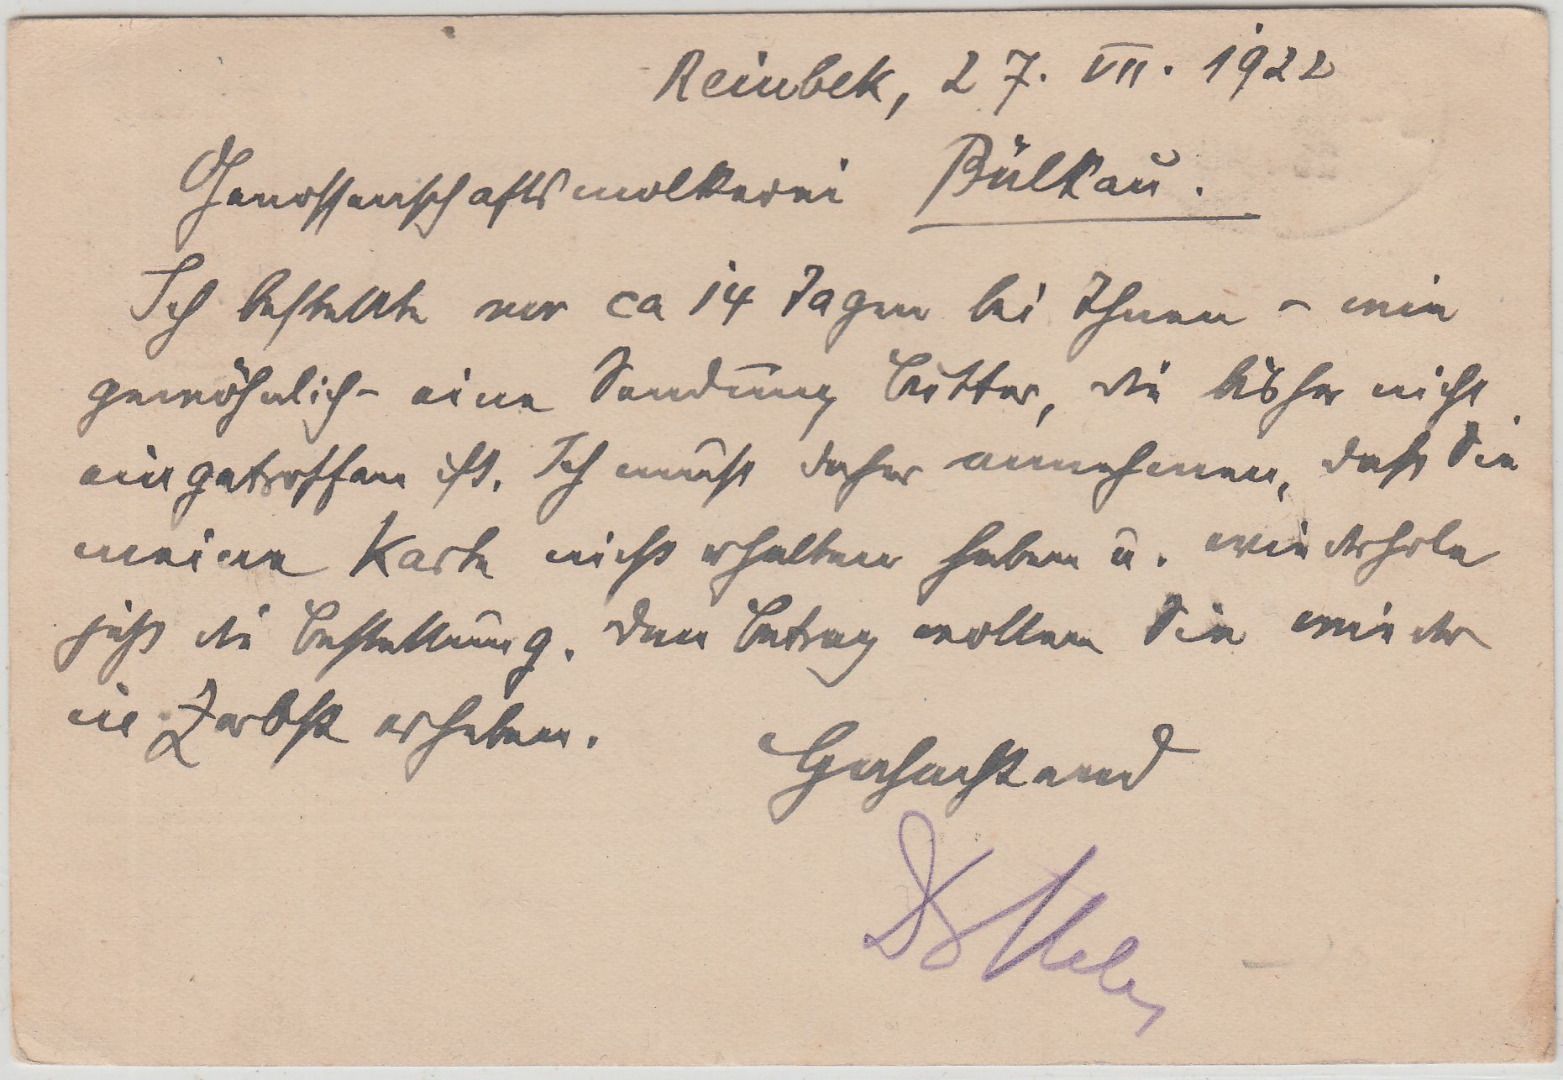 Reinbek, 27. VII. 1922
Genossenschaftsmolkerei Bülkau.
Ich bestellte vor ca 14 Tagen bei Ihnen – wie
gewöhnlich – eine Sendung Butter, die bisher nicht
eingetroffen ist. Ich muß daher annehmen, daß Sie
meine Karte nicht erhalten haben u. wiederhole
jetzt die Bestellung. Den Betrag wollen Sie wieder
in Zerbst erheben.
Hochachtend
Dr